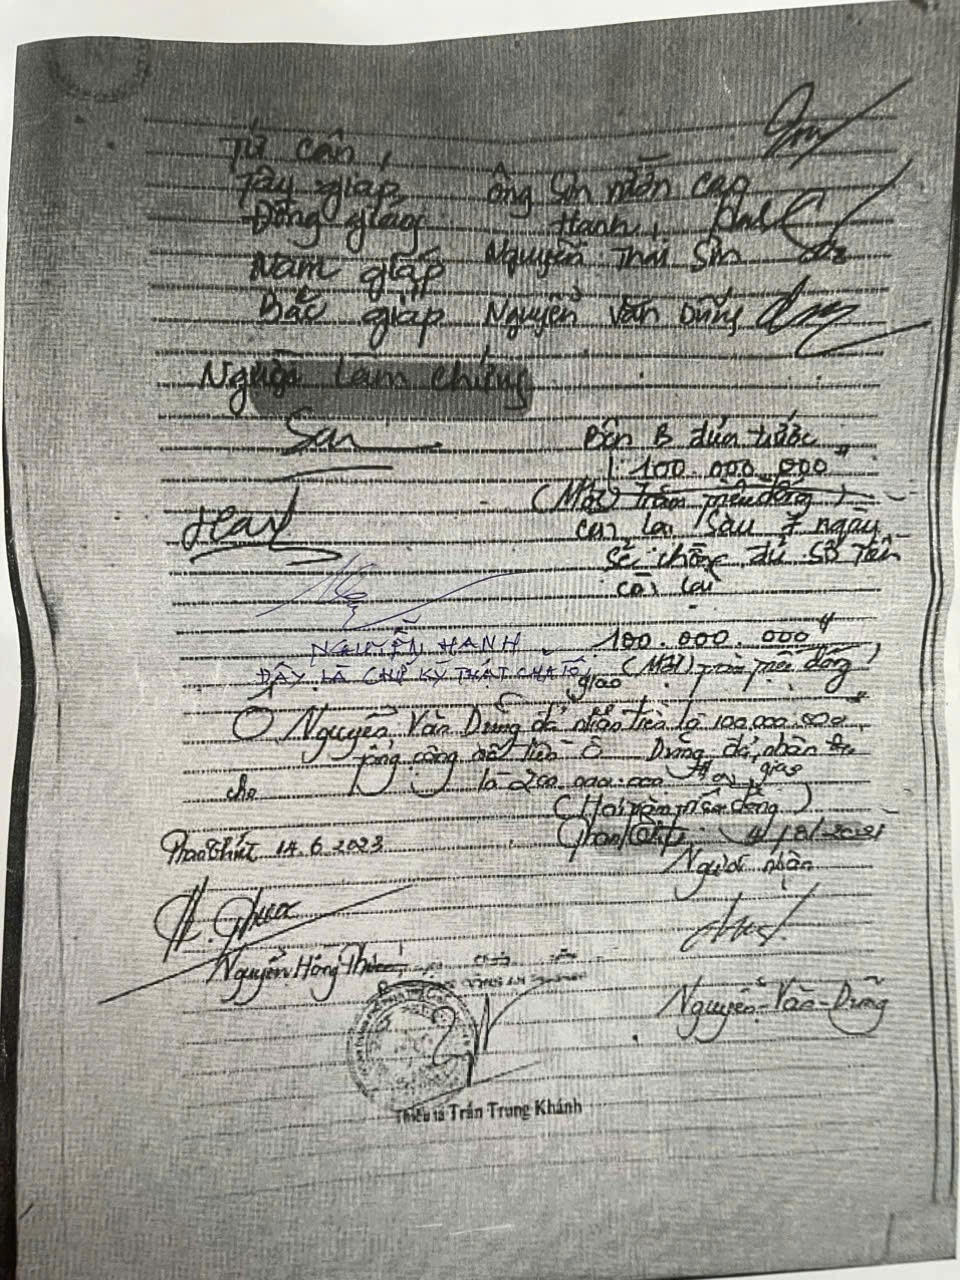 Tứ cận,
Tây giáp ông Sơn mòn cao
Đông giáp Hạnh,
Nam giáp Nguyễn Thái Sơn
Bắc giáp Nguyễn Văn Dũng
Người làm chứng
Bên B đưa trước
100.000.000đ
(Một trăm triệu đồng)
còn lại sau 7 ngày
sẽ chồng đủ số tiền
còn lại
NGUYỄN HẠNH
ĐÂY LÀ CHỮ KÝ THẬT CỦA TÔI
100.000.000đ
(Một trăm triệu đồng)
giao
Ô Nguyễn Văn Dũng đã nhận tiền là 100.000.000đ
tổng cộng số tiền Ô Dũng đã nhận
là 200.000.000đ
giao
cho
(Hai trăm triệu đồng)
Phan Thiết 14.6.2023
Người nhận
H. Phước
Nguyễn Hồng Phước
Nguyễn Văn Dũng
Thiếu tá Trần Trung Khánh